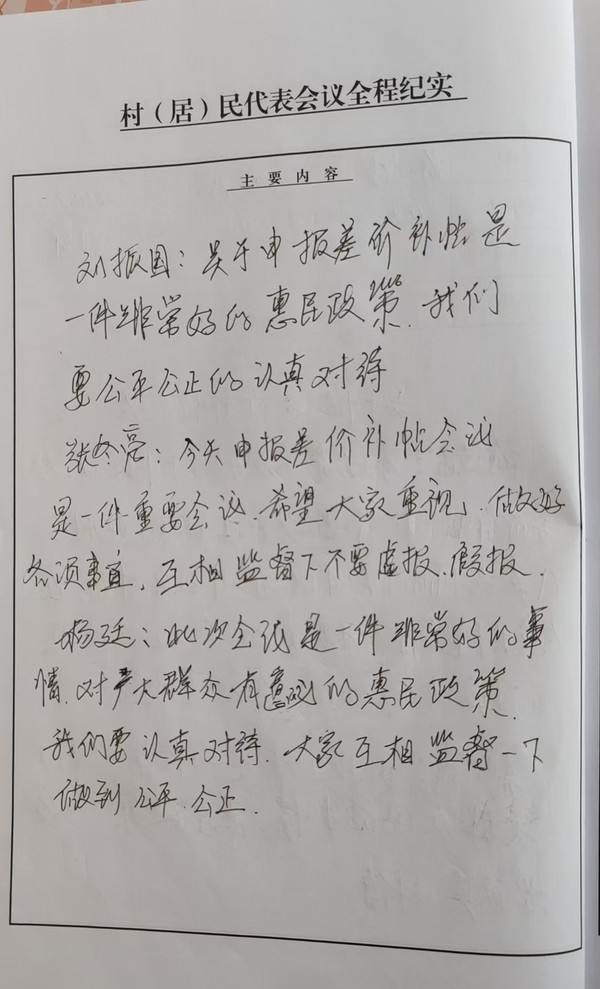 村（居）民代表会议全程纪实
主要内容
刘振国：关于申报差价补帖是
一件非常好的惠民政策.我们
要公平公正的认真对待
张冬亮：今天申报差价补帖会议
是一件重要会议.希望大家重视.做好
各项事宜.互相监督下不要虚报.假报.
杨廷：此次会议是一件非常好的事
情.对广大群众有 的惠民政策.
我们要认真对待.大家互相监督一下
做到公平.公正.